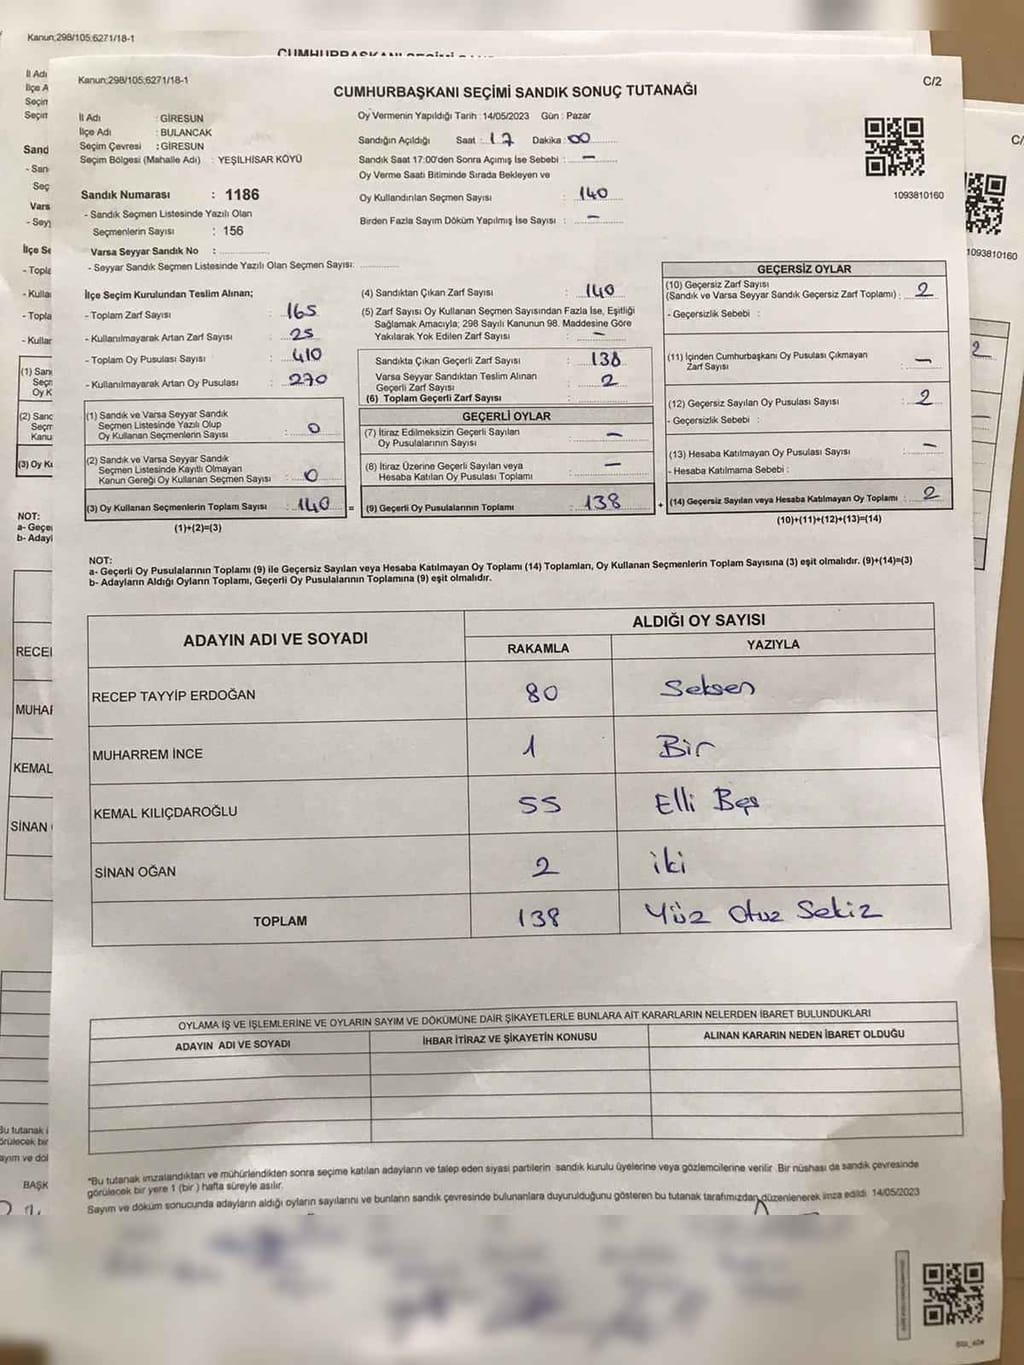 Kanun:298/105:6271/18-1
CUMHURBAŞKANI
Kanun:298/105:6271/18-1
C/2
CUMHURBAŞKANI SEÇİMİ SANDIK SONUÇ TUTANAĞI
İl Adı : GİRESUN
İlçe Adı : BULANCAK
Seçim Çevresi : GİRESUN
Seçim Bölgesi (Mahalle Adı) : YEŞİLHİSAR KÖYÜ
Sandık Numarası : 1186
- Sandık Seçmen Listesinde Yazılı Olan
Seçmenlerin Sayısı : 156
Varsa Seyyar Sandık No :
- Seyyar Sandık Seçmen Listesinde Yazılı Olan Seçmen Sayısı:
Oy Vermenin Yapıldığı Tarih : 14/05/2023 Gün : Pazar
Sandığın Açıldığı Saat : 17 Dakika : 00
Sandık Saat 17:00'den Sonra Açımış İse Sebebi : –
Oy Verme Saati Bitiminde Sırada Bekleyen ve
Oy Kullandırılan Seçmen Sayısı : 140
Birden Fazla Sayım Döküm Yapılmış İse Sayısı : –
1093810160
1093810160
İlçe Seçim Kurulundan Teslim Alınan;
- Toplam Zarf Sayısı : 165
- Kullanılmayarak Artan Zarf Sayısı : 25
- Toplam Oy Pusulası Sayısı : 410
- Kullanılmayarak Artan Oy Pusulası : 270
(1) Sandık ve Varsa Seyyar Sandık
Seçmen Listesinde Yazılı Olup
Oy Kullanan Seçmenlerin Sayısı : 0
(2) Sandık ve Varsa Seyyar Sandık
Seçmen Listesinde Kayıtlı Olmayan
Kanun Gereği Oy Kullanan Seçmen Sayısı : 0
(3) Oy Kullanan Seçmenlerin Toplam Sayısı : 140 =
(1)+(2)=(3)
(4) Sandıktan Çıkan Zarf Sayısı : 140
(5) Zarf Sayısı Oy Kullanan Seçmen Sayısından Fazla İse, Eşitliği
Sağlamak Amacıyla; 298 Sayılı Kanunun 98. Maddesine Göre
Yakılarak Yok Edilen Zarf Sayısı : –
Sandıkta Çıkan Geçerli Zarf Sayısı : 138
Varsa Seyyar Sandıktan Teslim Alınan
Geçerli Zarf Sayısı : 2
(6) Toplam Geçerli Zarf Sayısı :
GEÇERLİ OYLAR
(7) İtiraz Edilmeksizin Geçerli Sayılan
Oy Pusulalarının Sayısı : –
(8) İtiraz Üzerine Geçerli Sayılan veya
Hesaba Katılan Oy Pusulası Toplamı : –
(9) Geçerli Oy Pusulalarının Toplamı : 138 +
GEÇERSİZ OYLAR
(10) Geçersiz Zarf Sayısı
(Sandık ve Varsa Seyyar Sandık Geçersiz Zarf Toplamı) : 2
- Geçersizlik Sebebi :
(11) İçinden Cumhurbaşkanı Oy Pusulası Çıkmayan
Zarf Sayısı : –
(12) Geçersiz Sayılan Oy Pusulası Sayısı : 2
- Geçersizlik Sebebi :
(13) Hesaba Katılmayan Oy Pusulası Sayısı : –
- Hesaba Katılmama Sebebi :
(14) Geçersiz Sayılan veya Hesaba Katılmayan Oy Toplamı : 2
(10)+(11)+(12)+(13)=(14)
NOT:
a- Geçerli Oy Pusulalarının Toplamı (9) ile Geçersiz Sayılan veya Hesaba Katılmayan Oy Toplamı (14) Toplamları, Oy Kullanan Seçmenlerin Toplam Sayısına (3) eşit olmalıdır. (9)+(14)=(3)
b- Adayların Aldığı Oyların Toplamı, Geçerli Oy Pusulalarının Toplamına (9) eşit olmalıdır.
ADAYIN ADI VE SOYADI
ALDIĞI OY SAYISI
RAKAMLA YAZIYLA
RECEP TAYYİP ERDOĞAN 80 Seksen
MUHARREM İNCE 1 Bir
KEMAL KILIÇDAROĞLU 55 Elli Beş
SİNAN OĞAN 2 iki
TOPLAM 138 Yüz Otuz Sekiz
OYLAMA İŞ VE İŞLEMLERİNE VE OYLARIN SAYIM VE DÖKÜMÜNE DAİR ŞİKAYETLERLE BUNLARA AİT KARARLARIN NELERDEN İBARET BULUNDUKLARI
ADAYIN ADI VE SOYADI İHBAR İTİRAZ VE ŞİKAYETİN KONUSU ALINAN KARARIN NEDEN İBARET OLDUĞU
*Bu tutanak imzalandıktan ve mühürlendikten sonra seçime katılan adayların ve talep eden siyasi partilerin sandık kurulu üyelerine veya gözlemcilerine verilir. Bir nüshası da sandık çevresinde
görülecek bir yere 1 (bir ) hafta süreyle asılır.
Sayım ve döküm sonucunda adayların aldığı oyların sayılarını ve bunların sandık çevresinde bulunanlara duyurulduğunu gösteren bu tutanak tarafımızdan düzenlenerek imza edildi. 14/05/2023